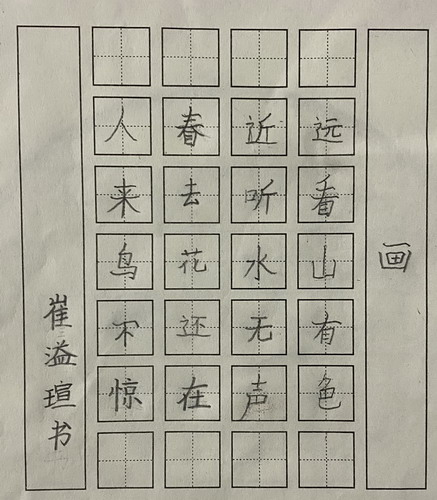 画
远看山有色
近听水无声
春去花还在
人来鸟不惊
崔溢瑄书